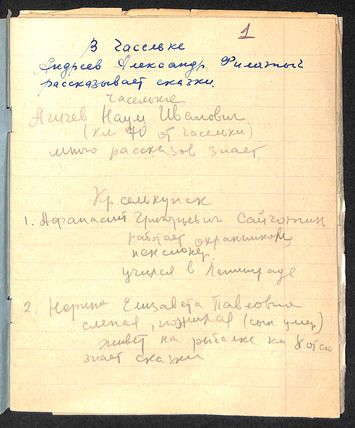 1
В Часельке
Андреев Александр Филатыч
рассказывает сказки.
Часельке
Агичев Наум Иванович
(км 70 от Часельки)
много рассказов знает
Красселькупск
1. Афанасий Григорьевич Сайготкин
работает охранником
пенсионер.
учился в Ленинграде
2. Елизавета Павловна
слепая, пожилая (сын умер)
живет на рыбалке км 8 отсю
знает сказки